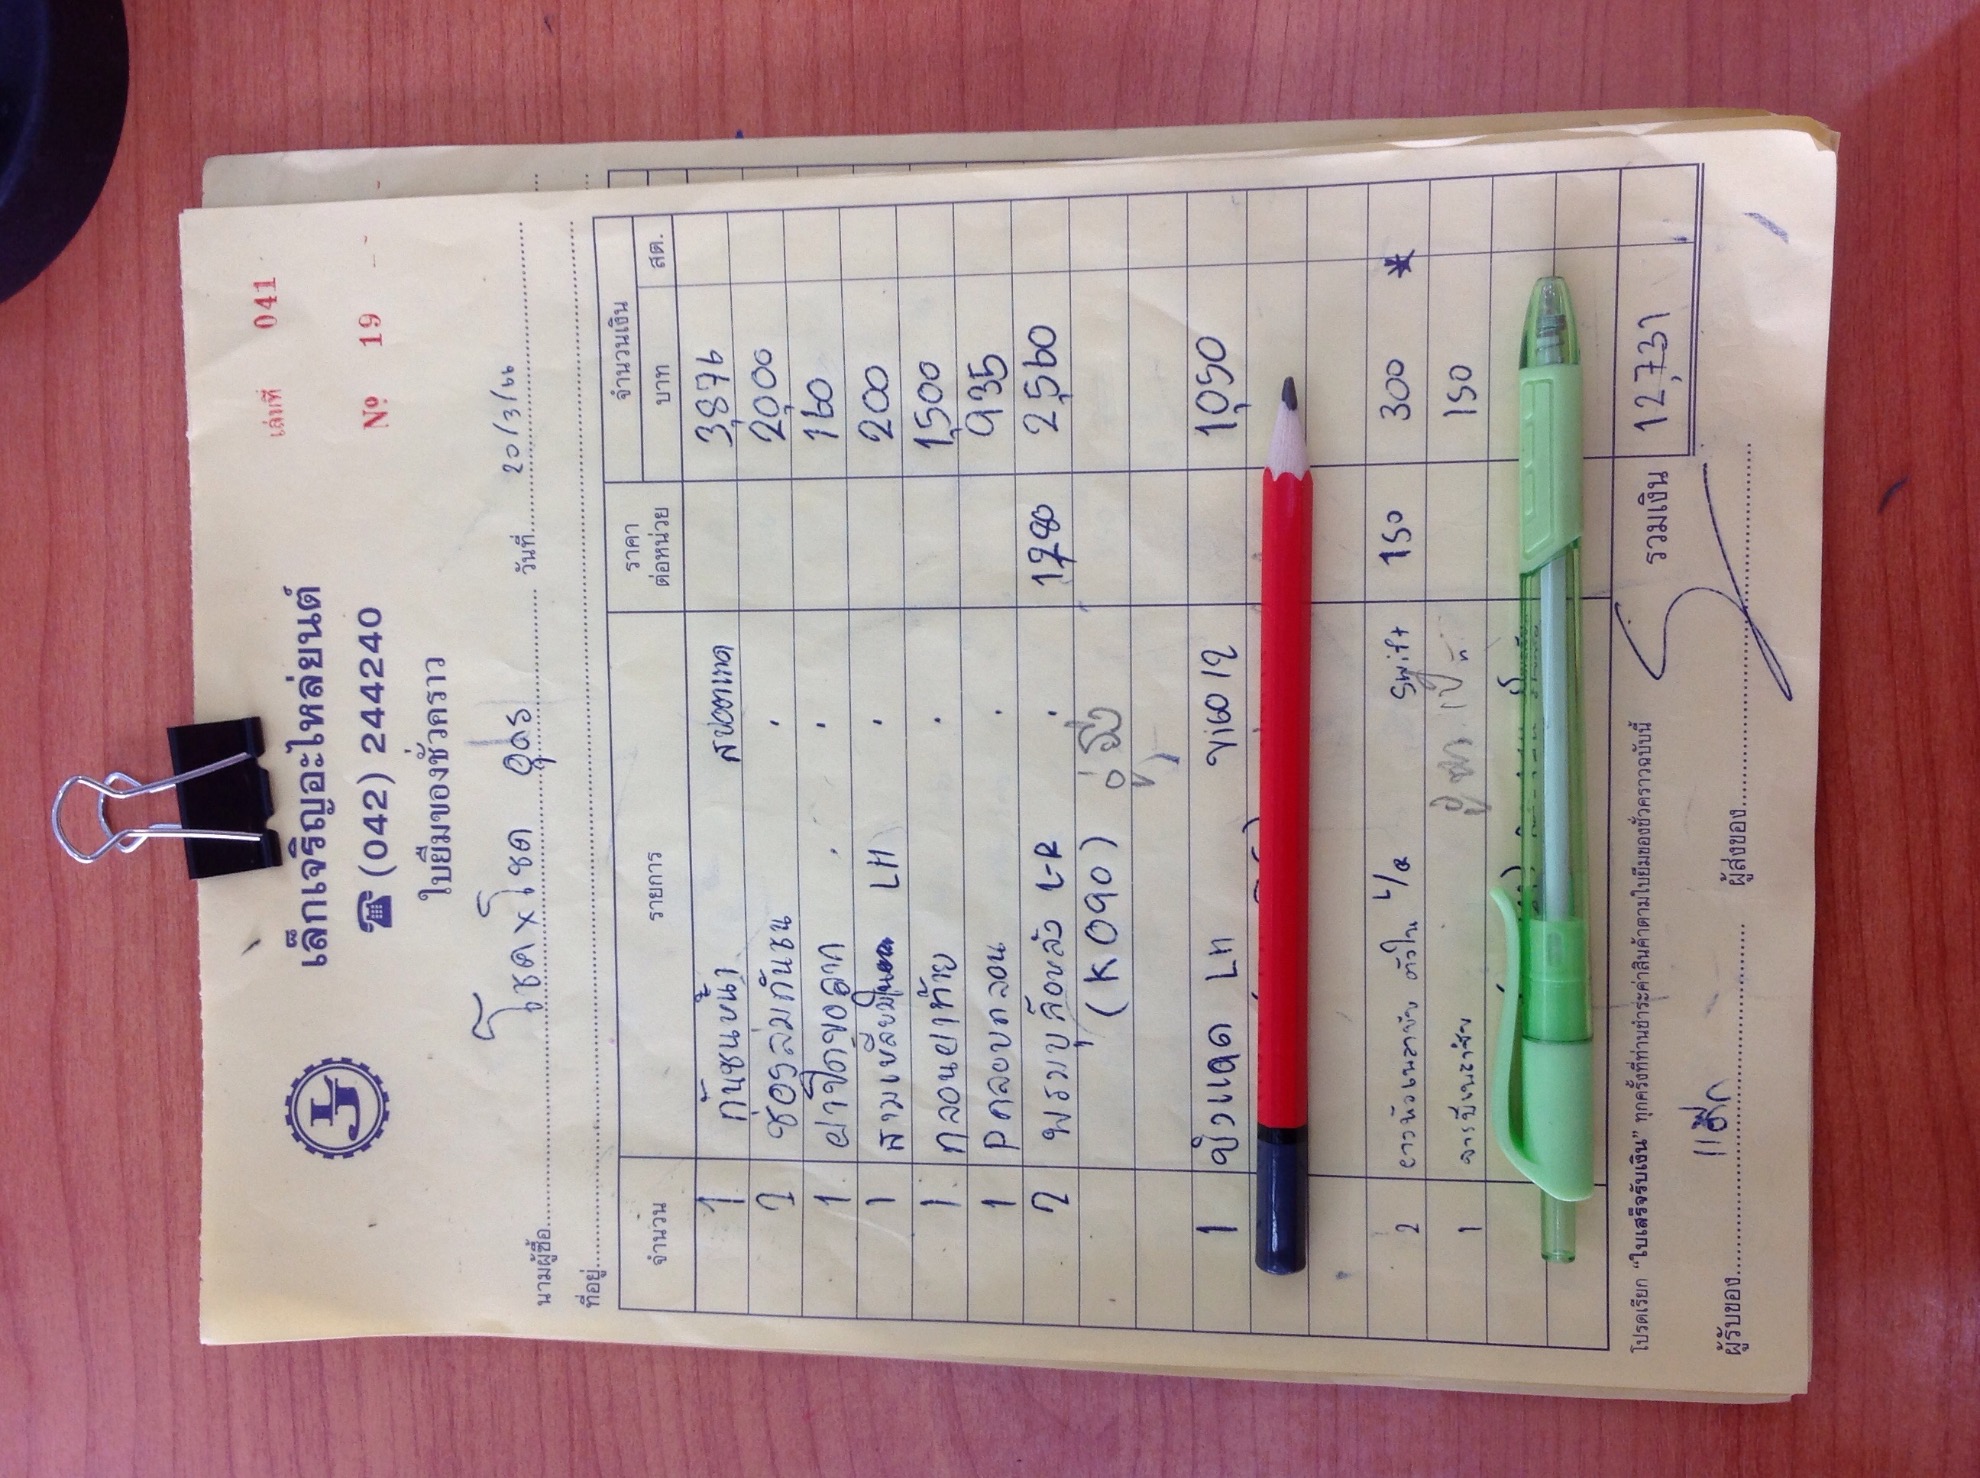 เล่มที่ 041
Nº 19
เล็กเจริญอะไหล่ยนต์
☎ (042) 244240
ใบยืมของชั่วคราว
นามผู้ซื้อ โชคxโชค อุดร วันที่ 20/3/66
ที่อยู่
จำนวน รายการ ราคาต่อหน่วย จำนวนเงิน
บาท สต.
1 กันชนหน้า 3,876
2 ช่องลมกันชน 2,000
1 ฝาปิดขอลาก 160
1 สามเหลี่ยม LH 200
1 กลอนฝาท้าย 1,500
1 935
2 พรมบุล้อหลัง L-R 1,280 2,560
(K090)
1 คิ้วแถด LH 1,050
2 L/R Swift 150 300 *
1 150
รวมเงิน 12,731
โปรดเรียก “ใบเสร็จรับเงิน” ทุกครั้งที่ท่านชำระค่าสินค้าตามใบยืมของชั่วคราวฉบับนี้
ผู้รับของ ผู้ส่งของ